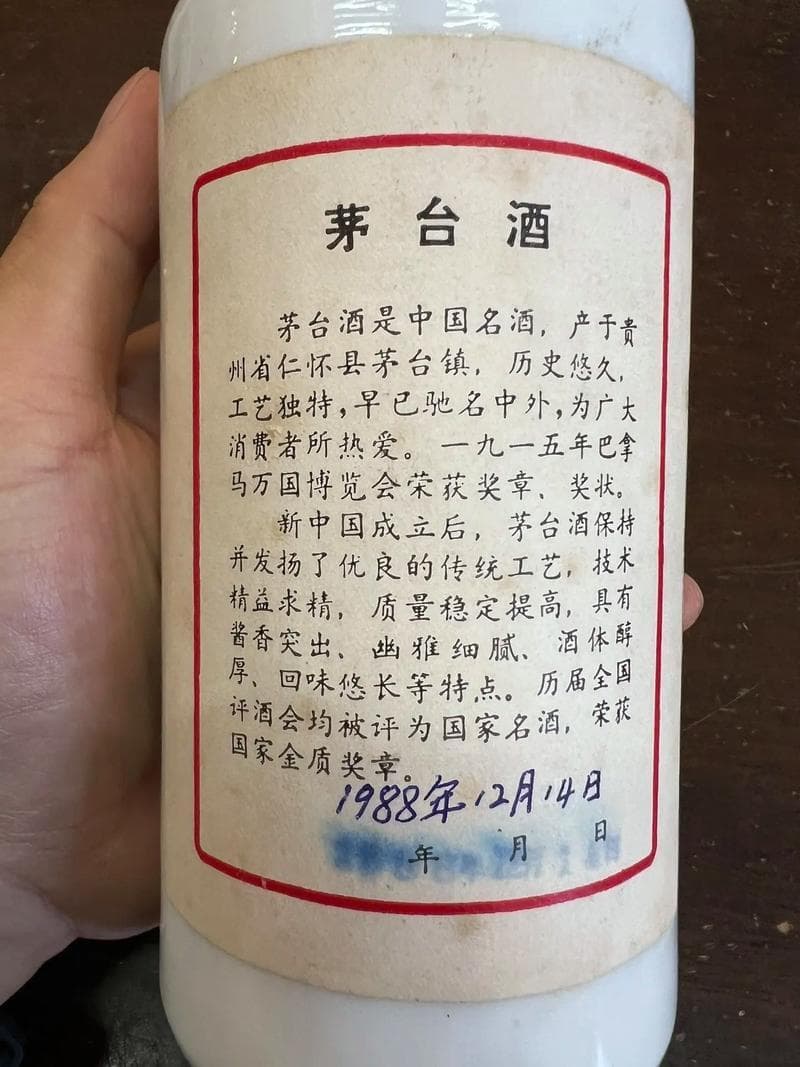 茅台酒
茅台酒是中国名酒，产于贵
州省仁怀县茅台镇，历史悠久，
工艺独特，早已驰名中外，为广大
消费者所热爱。一九一五年巴拿
马万国博览会荣获奖章、奖状。
新中国成立后，茅台酒保持
并发扬了优良的传统工艺，技术
精益求精，质量稳定提高，具有
酱香突出、幽雅细腻、酒体醇
厚、回味悠长等特点。历届全国
评酒会均被评为国家名酒，荣获
国家金质奖章。
1988年12月14日
年 月 日